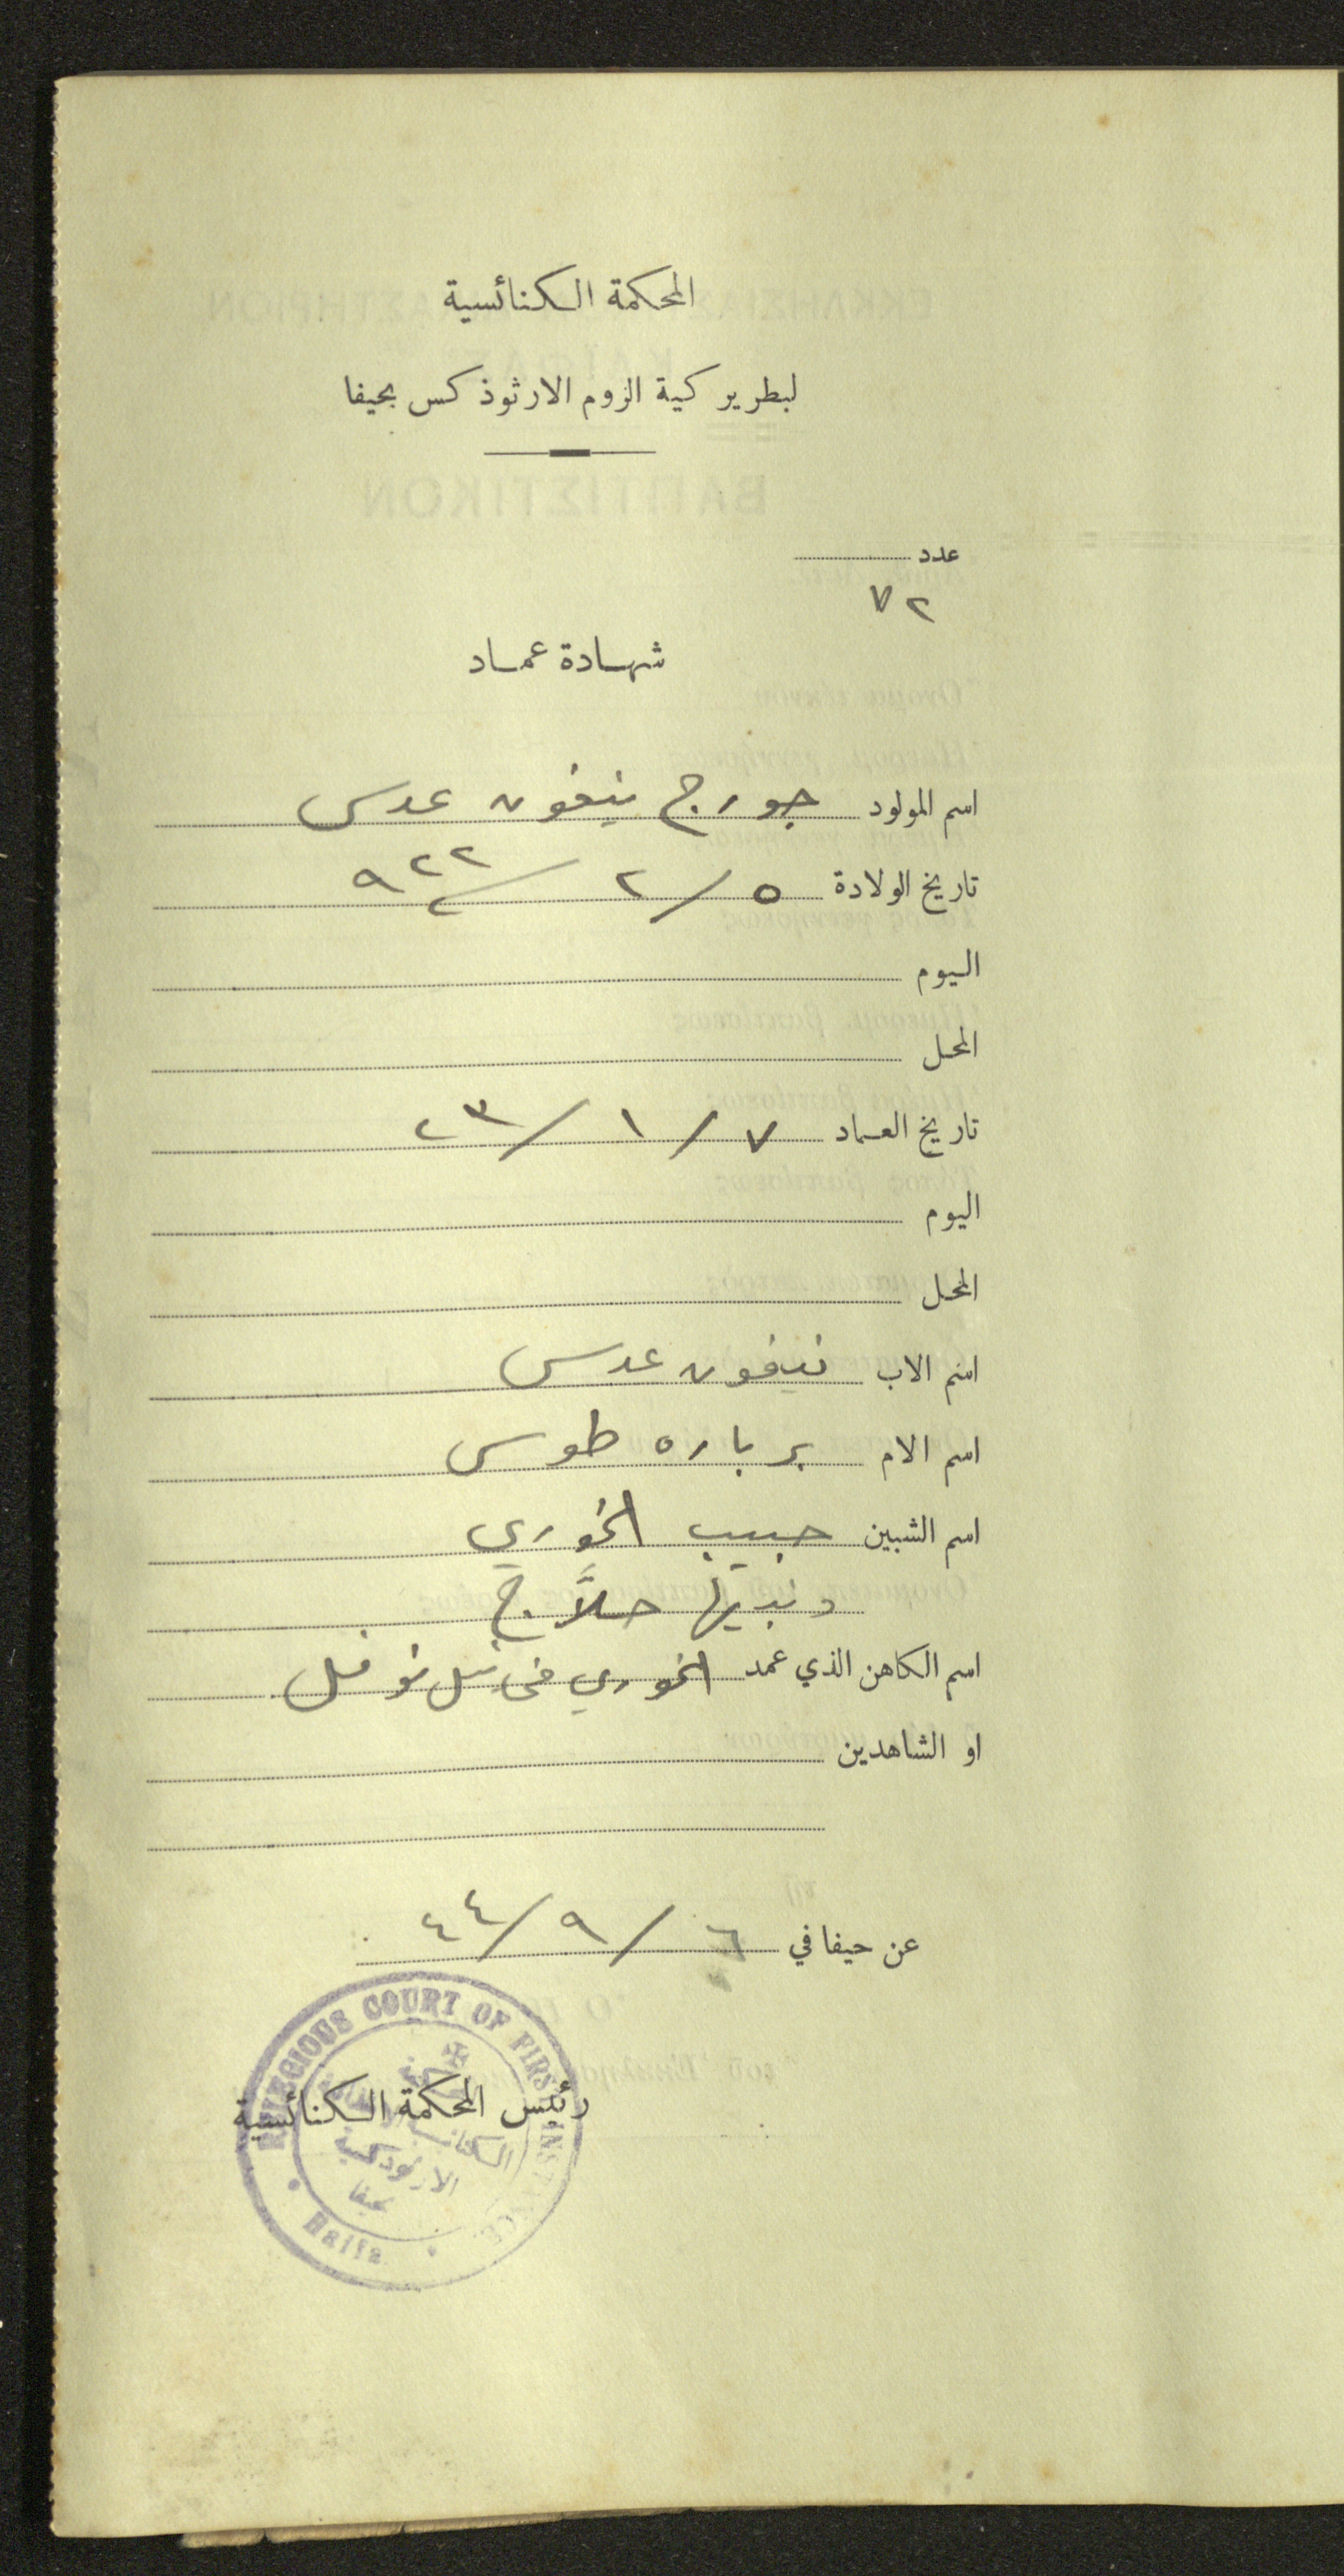 المحكمة الكنائسية
لبطريركية الروم الارثوذكس بحيفا
عدد
٧٢
شهادة عماد
اسم المولود جورج نيفون عدس
تاريخ الولادة ٥/٢/٩٢٢
اليوم
المحل
تاريخ العماد ٧/١/٢٣
اليوم
المحل
اسم الاب نيفون عدس
اسم الام برباره طوس
اسم الشبين حبيب الخوري
حلاّج
اسم الكاهن الذي عمد الخوري نوفل
او الشاهدين
عن حيفا في ٦/٩/٤٤
رئيس المحكمة الكنائسية
RELIGIOUS COURT OF FIRST INSTANCE
الكنائسية
الارثوذكسية
بحيفا
Haifa